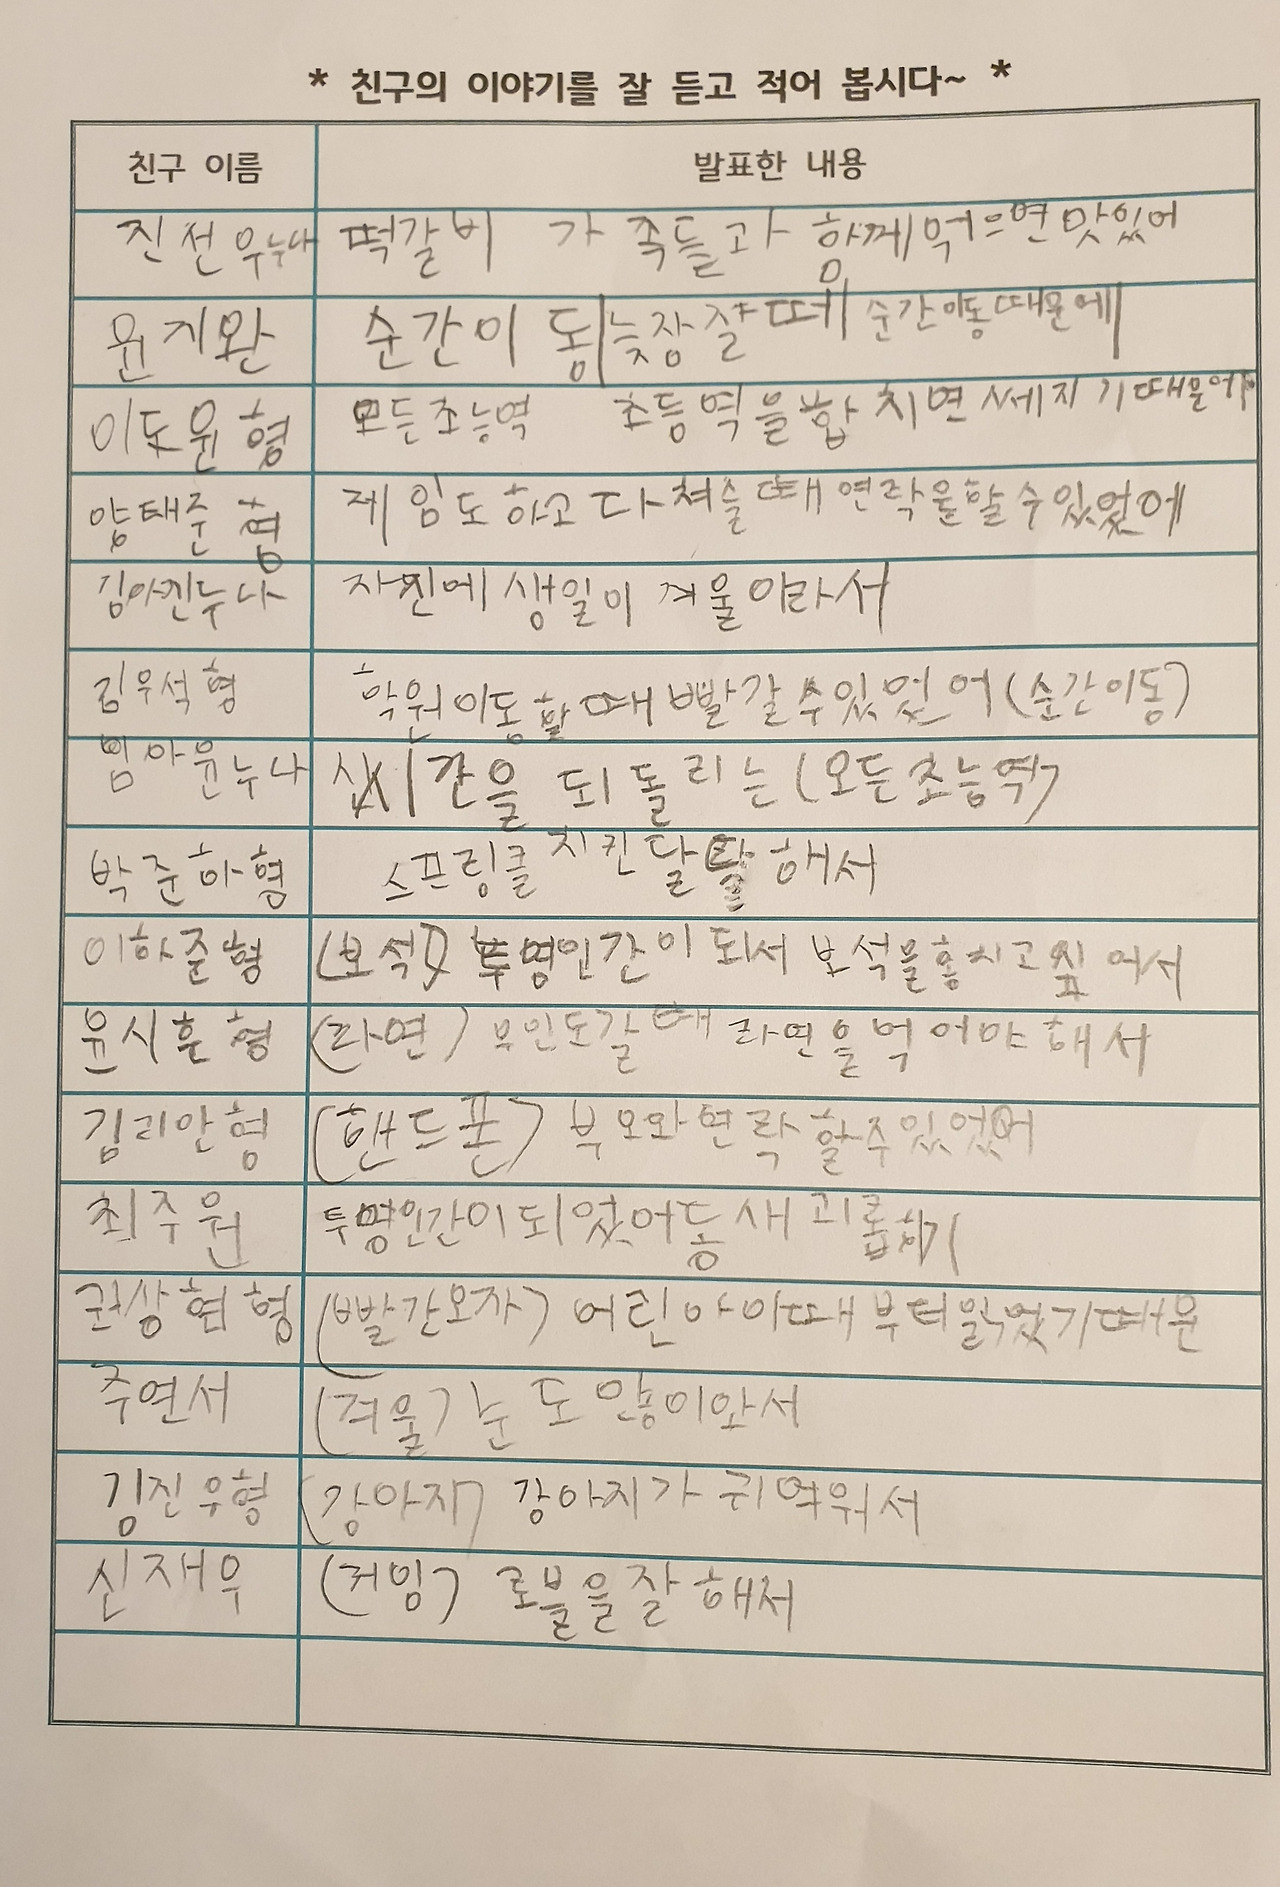 * 친구의 이야기를 잘 듣고 적어 봅시다~ *
친구 이름 발표한 내용
진선우누나 떡갈비 가족들과 함께먹으면맛있어
윤지완 순간이동 늦잠잘때 순간이동때문에
이도윤형 모든초능역 초등력을합치면쎄지기때문에
양태준형 제임도하고 다쳐슬때연락을할수있었에
김아진누나 자진에생일이 겨울이라서
김우석형 학원이동할때빨갈수있었어(순간이동)
아윤누나 시간을 되돌리는(모든초능역)
박준하형 스프링클치킨달달해서
이하준형 (보석) 투명인간이되서 보석을훔치고싶어서
윤시훈형 (라면) 무인도갈때 라면을먹어야해서
김리안형 (핸드폰) 부모와연락할수있었어
최주원 투명인간이되었어동새괴롭히기
권상혁형 (빨간모자) 어린아이때부터읽었기때문
주연서 (겨울) 눈도많이와서
김진우형 (강아지) 강아지가귀여워서
신재우 (게임) 로블을잘해서